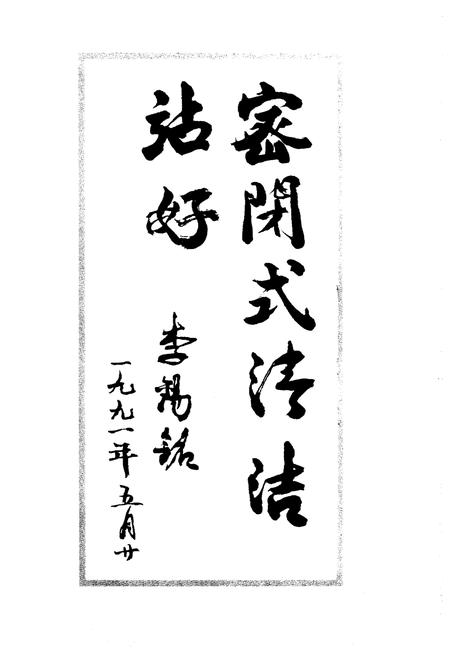 密閉式清洁
站好
李錫銘
一九九一年五月廿